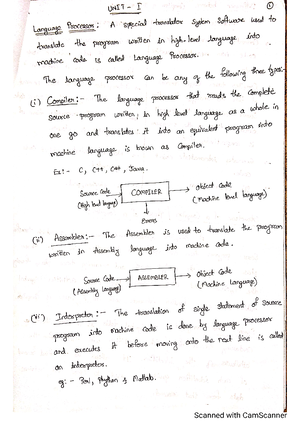 UNIT - I
①
Language Processor : A special translator system software used to
translate the program written in high-level language into
machine code is called Language Processor.
The language processor can be any of the following three types:-
(i) Compiler:- The language processor that reads the complete
source program written in high level language as a whole in
one go and translates it into an equivalent program into
machine language is known as Compiler.
Ex:- C, C++, C#, Java.
Source Code → COMPILER → Object Code
(High level language) (Machine level language)
Errors
(ii) Assembler:- The Assembler is used to translate the program
written in Assembly language into machine code.
Source Code → ASSEMBLER → Object Code
(Assembly Language) (Machine Language)
(iii) Interpreter:- The translation of single statement of source
program into machine code is done by language processor
and executes it before moving onto the next line is called
an Interpreter.
eg:- Perl, Python & Matlab.
Scanned with CamScanner